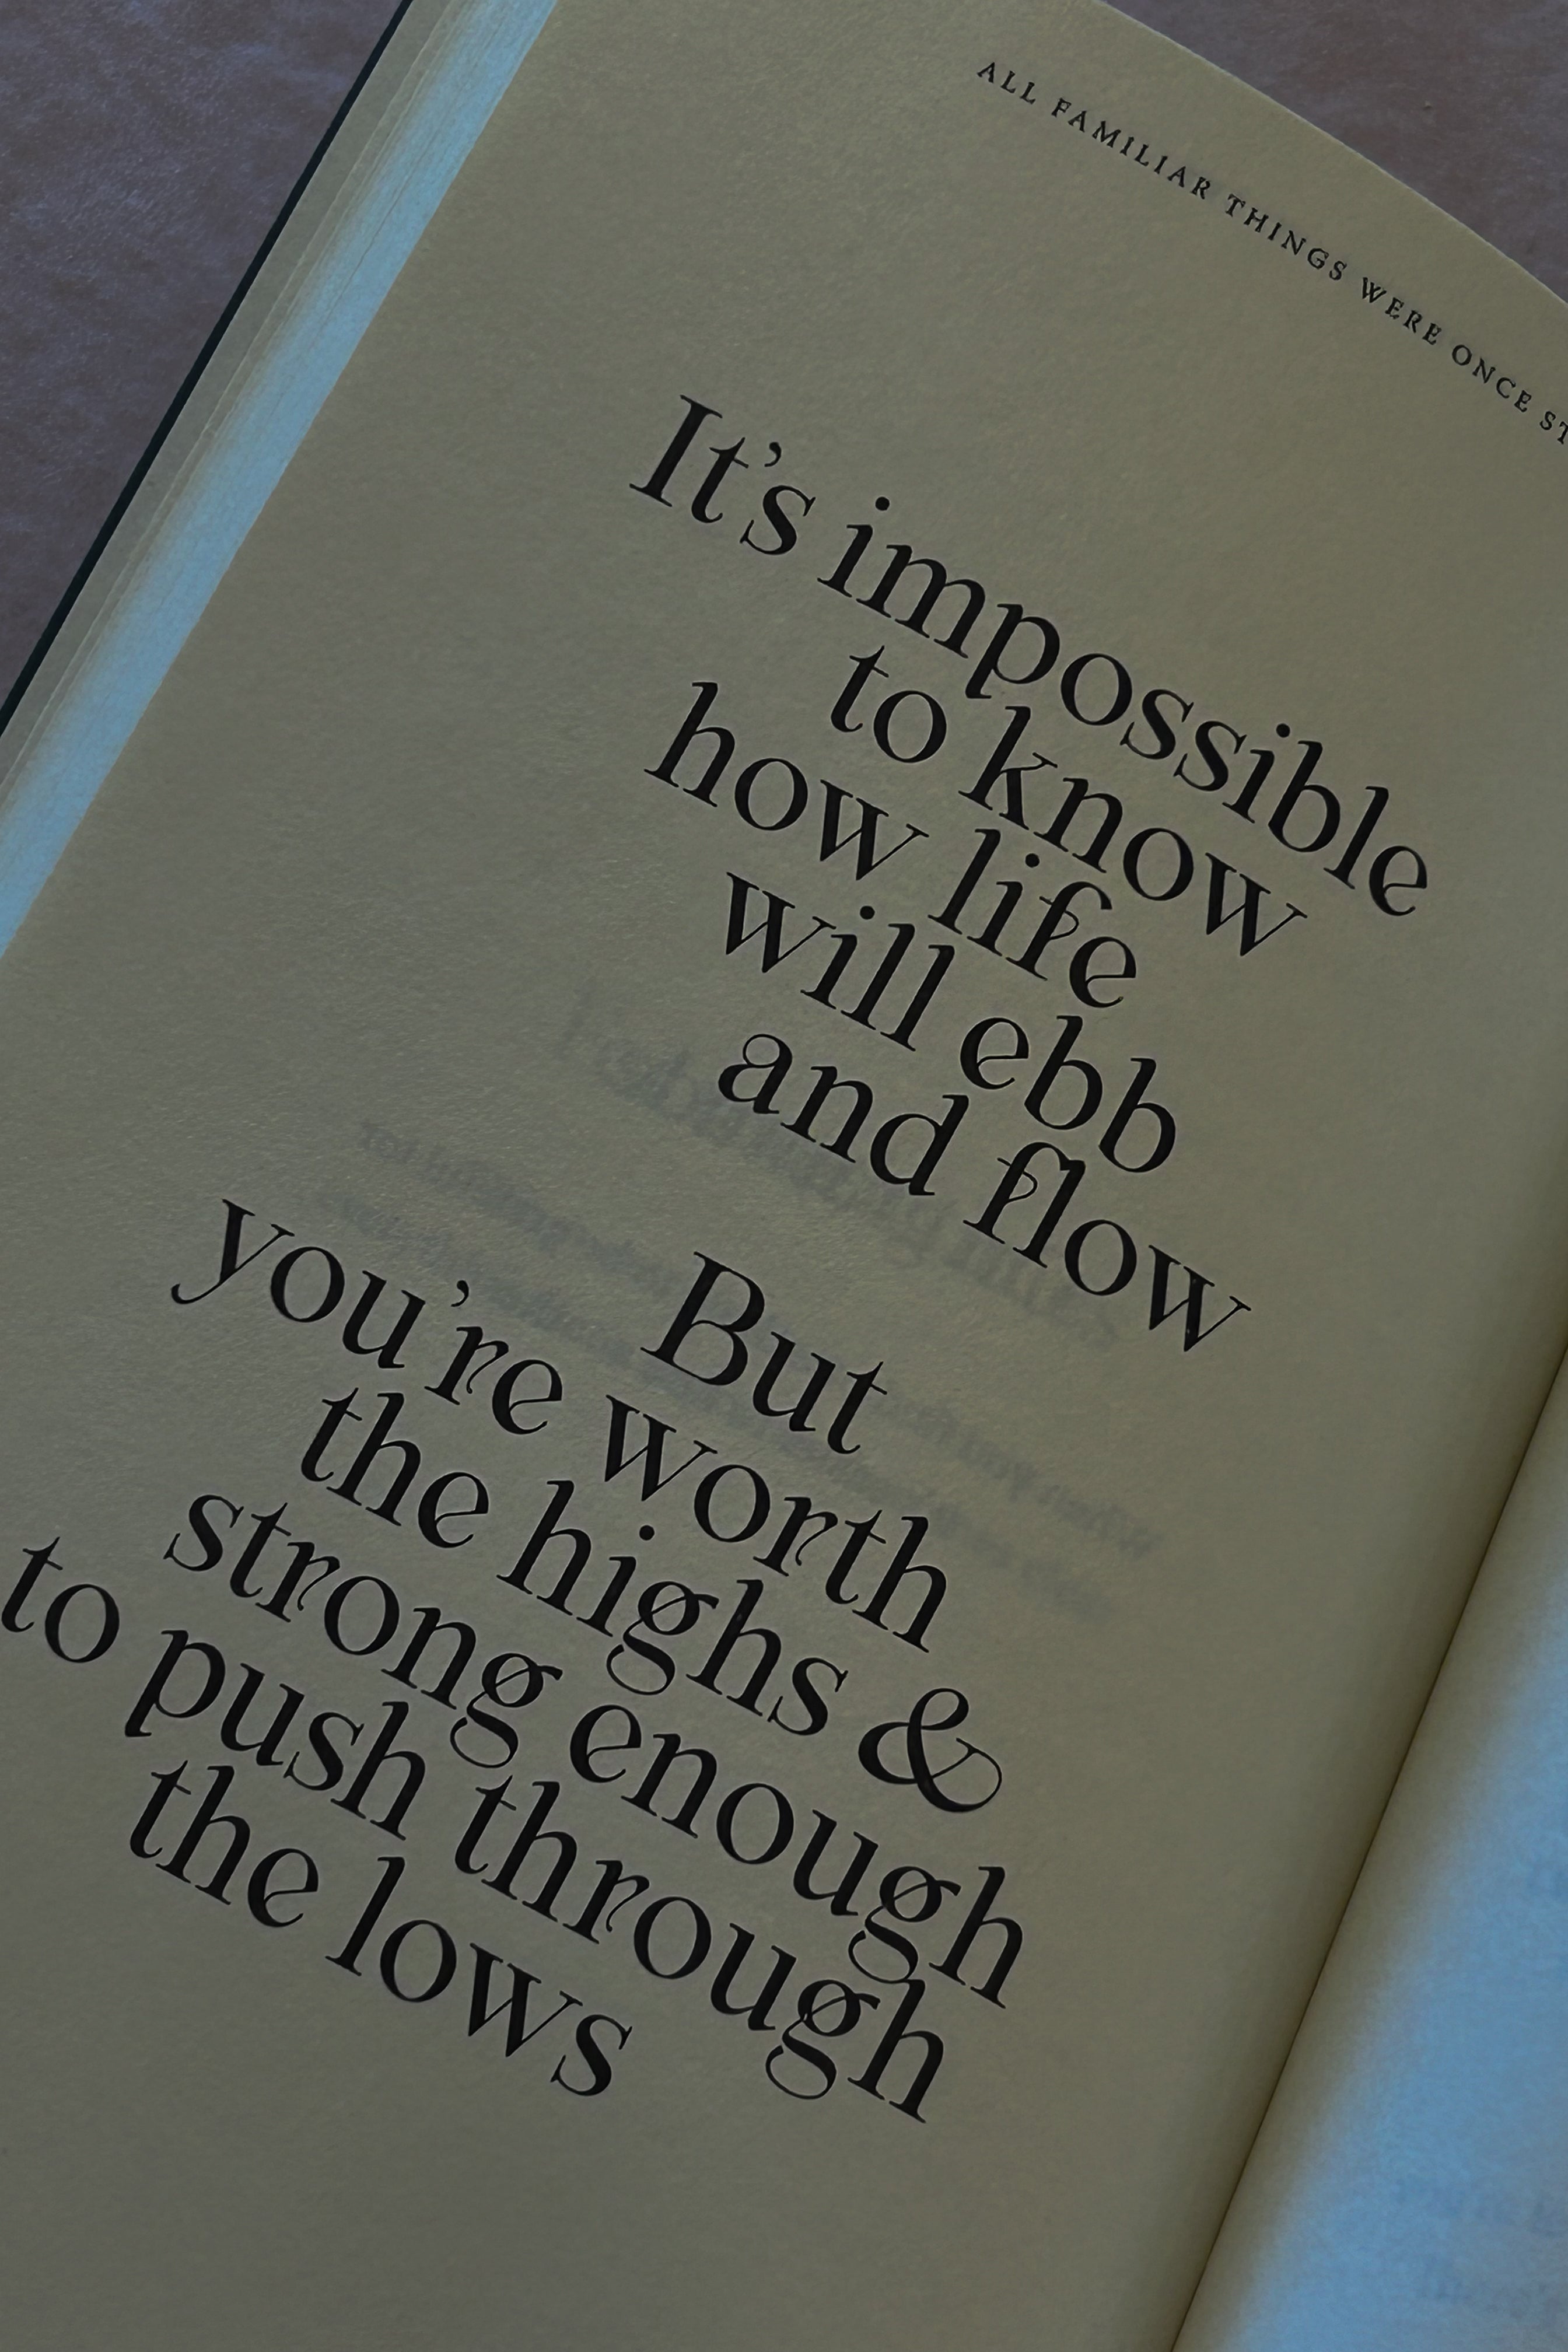 ALL FAMILIAR THINGS WERE ONCE
It's impossible
to know
how life
will ebb
and flow
But
you're worth
the highs &
strong enough
to push through
the lows